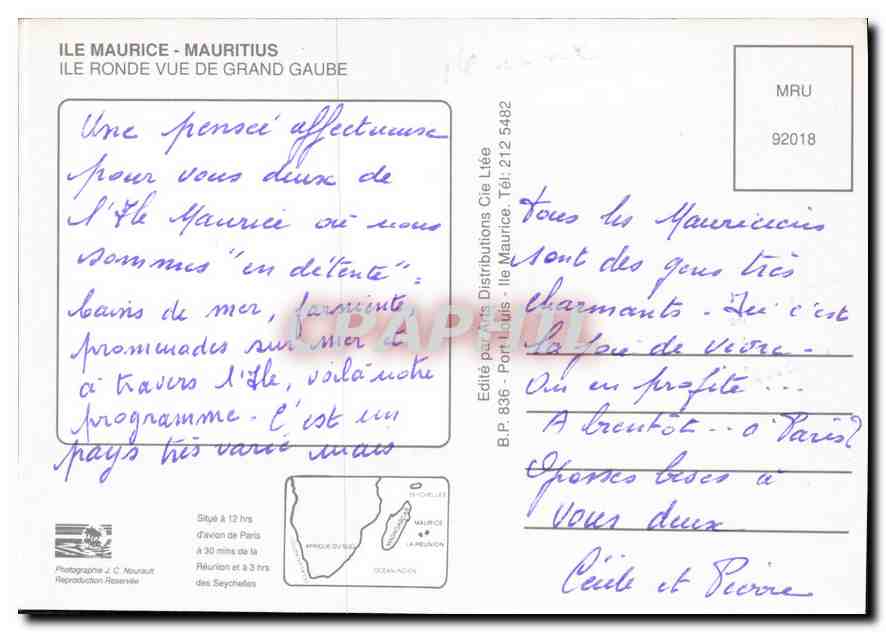 ILE MAURICE - MAURITIUS
ILE RONDE VUE DE GRAND GAUBE
Une pensée affectueuse
pour vous deux de
l'Ile Maurice où nous
sommes "en détente" :
bains de mer, farniente,
promenades sur mer et
à travers l'Ile, voilà notre
programme - C'est un
pays très varié mais
Situé à 12 hrs
d'avion de Paris
à 30 mins de la
Réunion et à 3 hrs
des Seychelles
Photographie J. C. Nourault
Reproduction Reservée
SEYCHELLES
MADAGASCAR
MAURICE
LA REUNION
AFRIQUE DU SUD
OCEAN INDIEN
Edité par Arts Distributions Cie Ltée
B.P. 836 - Port Louis - Ile Maurice. Tél: 212 5482
MRU
92018
tous les Mauriciens
sont des gens très
charmants - Ici c'est
la joie de vivre -
On en profite ...
A bientôt .. à Paris?
Grosses bises à
vous deux
Cécile et Pierre
CPAPHIL